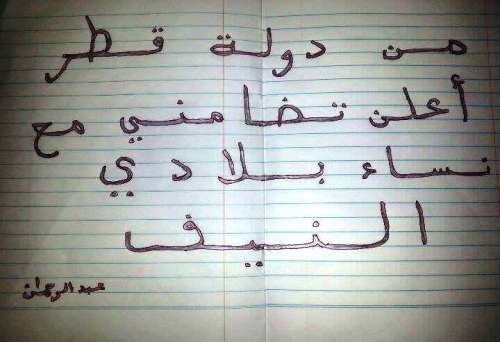 من دولة قطر
أعلن تضامني مع
نساء بلادي
النيف
عبدالرحمان